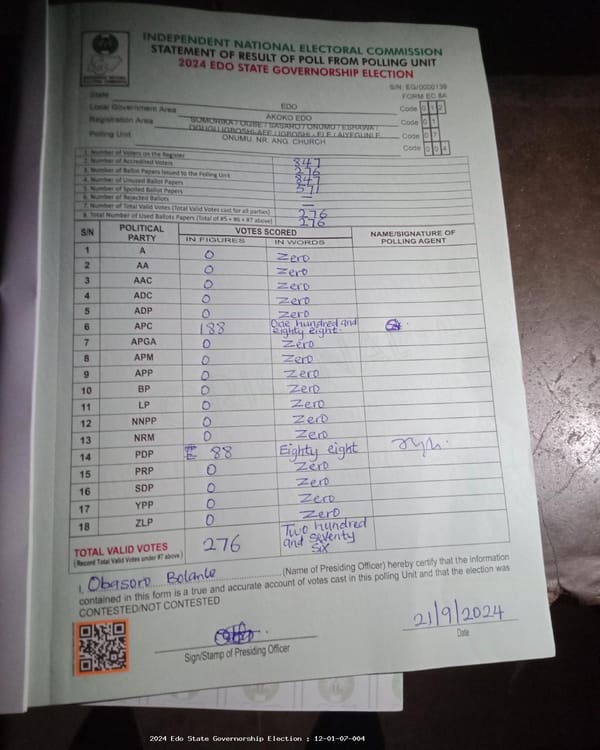 INDEPENDENT NATIONAL ELECTORAL COMMISSION
STATEMENT OF RESULT OF POLL FROM POLLING UNIT
2024 EDO STATE GOVERNORSHIP ELECTION
S/N: EG/0000139
FORM EC 8A
State EDO Code 012
Local Government Area AKOKO EDO Code 01
Registration Area SOMORIKA / OGBE / SASARO / ONUMU / ESHAWA / OGUGU / IGBOSHI-AFE / IGBOSHI-ELE / AIYEGUNLE Code 07
Polling Unit ONUMU NR. ANG. CHURCH Code 004
1. Number of Voters on the Register 847
2. Number of Accredited Voters 276
3. Number of Ballot Papers Issued to the Polling Unit 847
4. Number of Unused Ballot Papers 571
5. Number of Spoiled Ballot Papers —
6. Number of Rejected Ballots —
7. Number of Total Valid Votes (Total Valid Votes cast for all parties) 276
8. Total Number of Used Ballots Papers (Total of #5 + #6 + #7 above) 276
S/N POLITICAL PARTY VOTES SCORED NAME/SIGNATURE OF POLLING AGENT
IN FIGURES IN WORDS
1 A 0 Zero
2 AA 0 Zero
3 AAC 0 Zero
4 ADC 0 Zero
5 ADP 0 Zero
6 APC 188 One hundred and eighty eight.
7 APGA 0 Zero
8 APM 0 Zero
9 APP 0 Zero
10 BP 0 Zero
11 LP 0 Zero
12 NNPP 0 Zero
13 NRM 0 Zero
14 PDP 88 Eighty eight
15 PRP 0 Zero
16 SDP 0 Zero
17 YPP 0 Zero
18 ZLP 0 Zero
TOTAL VALID VOTES 276 Two hundred and seventy six
(Record Total Valid Votes under #7 above)
I, Obasoro Bolanle (Name of Presiding Officer) hereby certify that the information
contained in this form is a true and accurate account of votes cast in this polling Unit and that the election was
CONTESTED/NOT CONTESTED
21/9/2024
Sign/Stamp of Presiding Officer Date
2024 Edo State Governorship Election : 12-01-07-004